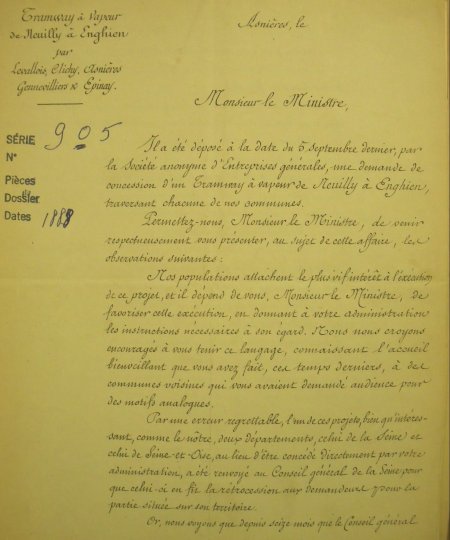 Tramway à Vapeur
de Neuilly à Enghien
par
Levallois, Clichy, Asnières
Gennevilliers & Epinay.
Asnières, le
Monsieur le Ministre,
SÉRIE 905
N°
Pièces
Dossier
Dates 1888
Il a été déposé à la date du 5 Septembre dernier, par
la Société anonyme d'Entreprises générales, une demande de
concession d'un Tramway à vapeur de Neuilly à Enghien,
traversant chacune de nos communes.
Permettez-nous, Monsieur le Ministre, de venir
respectueusement vous présenter, au sujet de cette affaire, les
observations suivantes :
Nos populations attachent le plus vif intérêt à l'exécution
de ce projet, et il dépend de vous, Monsieur le Ministre, de
favoriser cette exécution, en donnant à votre administration
les instructions nécessaires à son égard. Nous nous croyons
encouragés à vous tenir ce langage, connaissant l'accueil
bienveillant que vous avez fait, ces temps derniers, à des
communes voisines qui vous avaient demandé audience pour
des motifs analogues.
Par une erreur regrettable, l'un de ces projets, bien qu'intéres-
sant, comme le nôtre, deux départements, celui de la Seine et
celui de Seine-et-Oise, au lieu d'être concédé directement par votre
administration, a été renvoyé au Conseil général de la Seine pour
que celui-ci en fit la rétrocession aux demandeurs pour la
partie située sur son territoire.
Or, nous voyons que depuis seize mois que le Conseil général